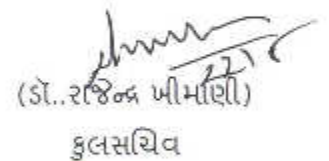 (ડૉ..રાજેન્દ્ર ખીમાણી)
કુલસચિવ